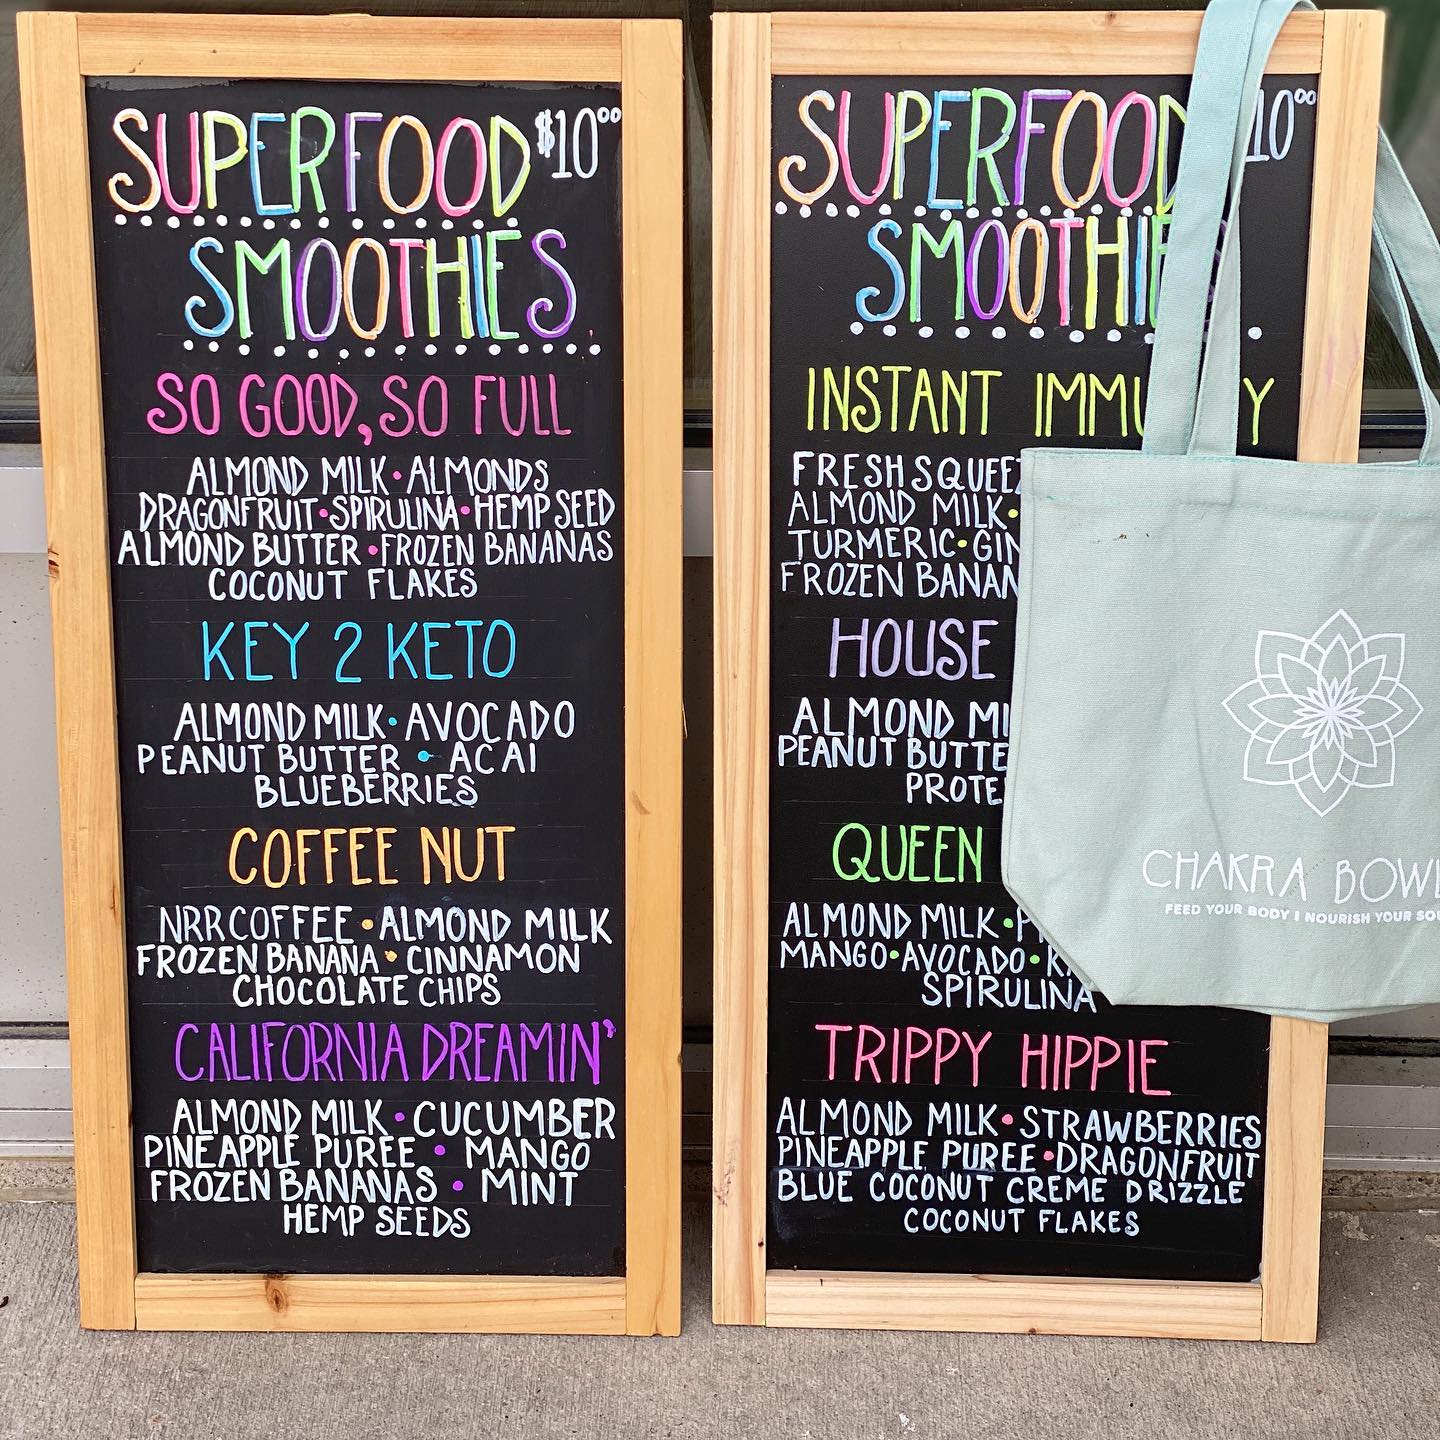 SUPERFOOD $10.00
SMOOTHIES
SO GOOD, SO FULL
ALMOND MILK • ALMONDS
DRAGONFRUIT • SPIRULINA • HEMP SEED
ALMOND BUTTER • FROZEN BANANAS
COCONUT FLAKES
KEY 2 KETO
ALMOND MILK • AVOCADO
PEANUT BUTTER • ACAI
BLUEBERRIES
COFFEE NUT
NRR COFFEE • ALMOND MILK
FROZEN BANANA • CINNAMON
CHOCOLATE CHIPS
CALIFORNIA DREAMIN'
ALMOND MILK • CUCUMBER
PINEAPPLE PUREE • MANGO
FROZEN BANANAS • MINT
HEMP SEEDS
SUPERFOOD 10.00
SMOOTHIES
INSTANT
FRESH
ALMOND MILK •
TURMERIC •
FROZEN
HOUSE
ALMOND
PEANUT
QUEEN
ALMOND MILK •
MANGO • AVOCADO •
SPIRULINA
TRIPPY HIPPIE
ALMOND MILK • STRAWBERRIES
PINEAPPLE PUREE • DRAGONFRUIT
BLUE COCONUT CREME DRIZZLE
COCONUT FLAKES
CHAKRA
FEED YOUR BODY | NOURISH YOUR